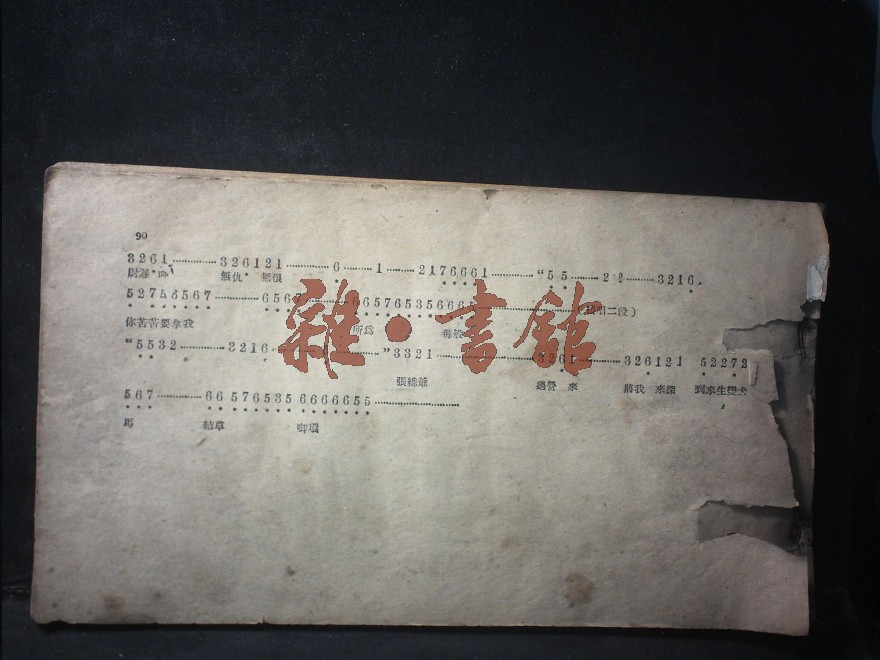 90
3261··············326121··············6·········1·········2176661··········"55··········22·········3216
尉遲 無仇 無恨
52756567················6567················665765356665
你苦苦要拿我 所爲
"5532············3216 "3321 3261············326121 52272
張總爺 過營 來 將我 來 到來生變犬
567··············66 576535 6666655
馬 結草 啣環
雜·書館